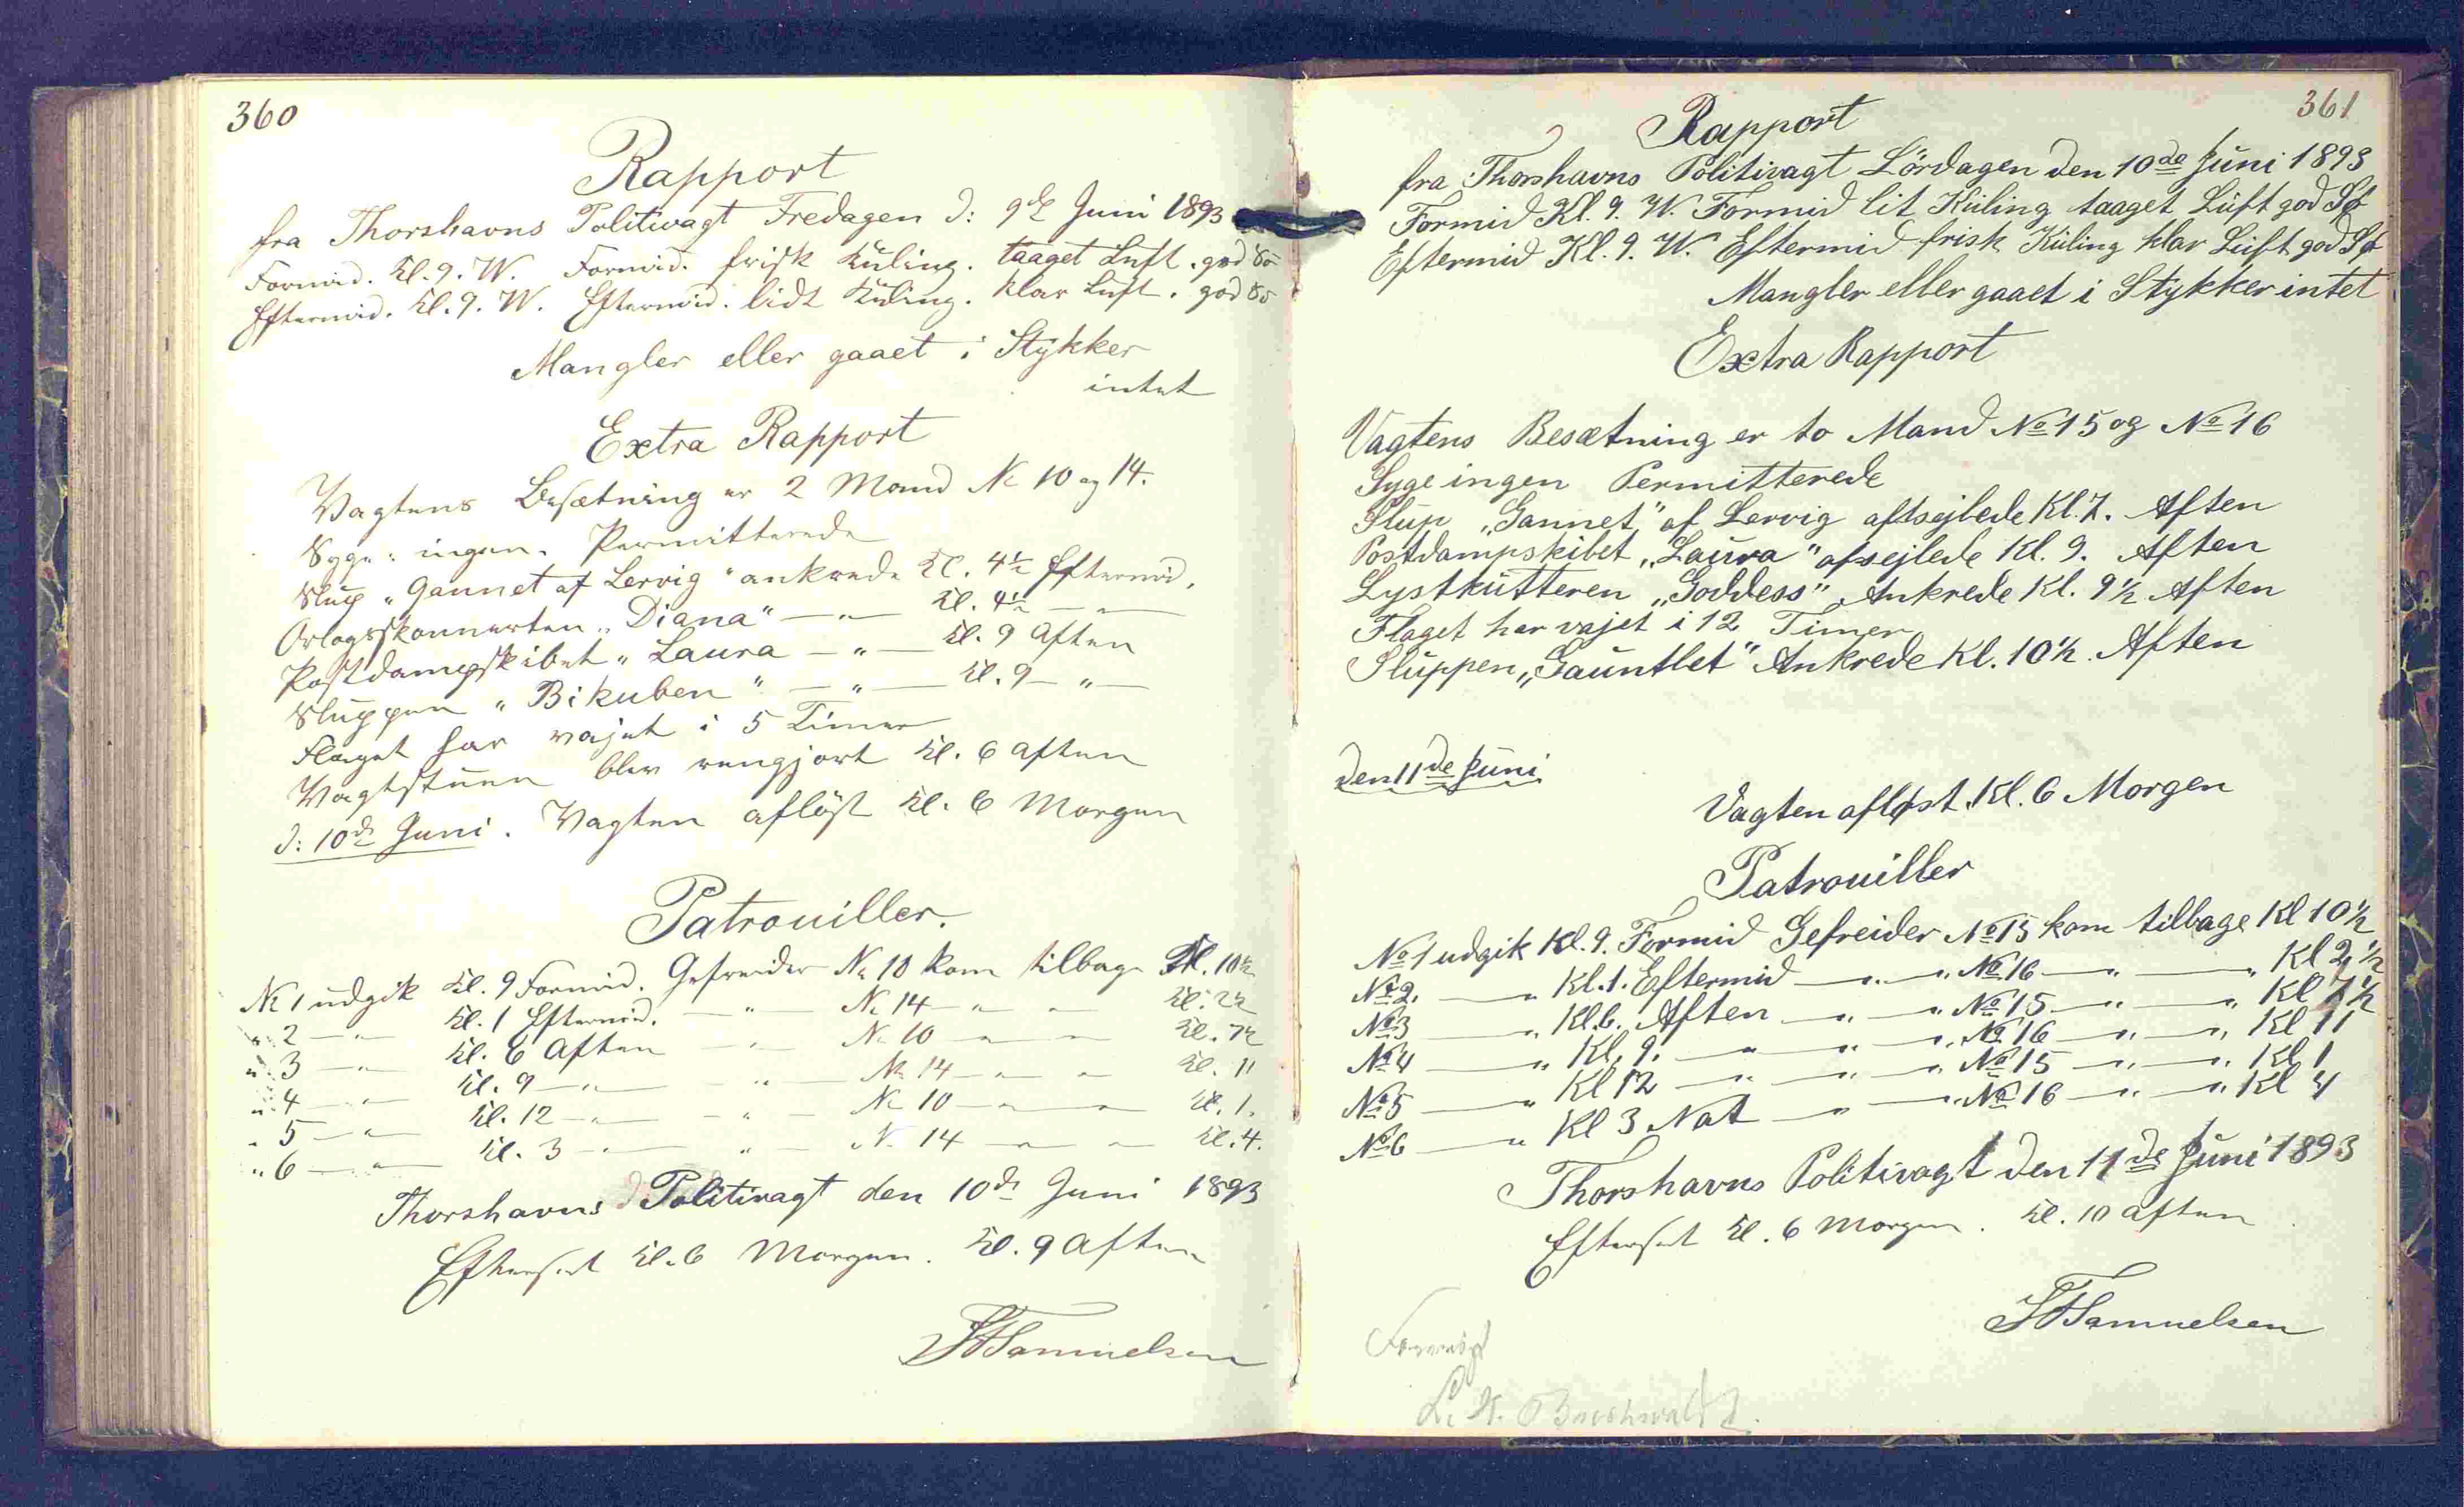 360
Rapport
fra Thorshavns Politivagt Fredagen d: 9de Juni 1893
Formid. Kl. 9. W. Formid. frisk Kuling. taaget Luft. god Sö
Eftermid. Kl. 9. W. Eftermid. lidt Kuling. klar Luft. god Sö
Mangler eller gaaet i Stykker
intet
Extra Rapport
Vagtens Besætning er 2 Mand No 10 og 14.
Syge: ingen. Permitterede
Slup "Gannet af Lervig" ankrede Kl. 4½ Eftermid.
Orlogsskonnerten "Diana" — " — Kl. 4½ — " —
Postdampskibet "Laura — " — Kl. 9 Aften
Sluppen "Bikuben" — " — Kl. 9 — " —
Flaget har vajet i 5 Timer
Vagtstuen blev rengjort Kl. 6 Aften
d: 10de Juni. Vagten aflöst Kl. 6 Morgen
Patrouiller.
No 1 udgik Kl. 9 Formid. Gefreider No 10 kom tilbage Kl. 10½
" 2 — " — Kl. 1 Eftermid. — " — No 14 — " — Kl. 2½
" 3 — " — Kl. 6 Aften — " — No 10 — " — Kl. 7½
" 4 — " — Kl. 9 — " — " — No 14 — " — Kl. 11
" 5 — " — Kl. 12 — " — " — No 10 — " — Kl. 1.
" 6 — " — Kl. 3 — " — " — No 14 — " — Kl. 4.
Thorshavns Politivagt den 10de Juni 1893
Efterset Kl. 6 Morgen. Kl. 9 Aften
Samuelsen
361
Rapport
fra Thorshavns Politivagt Lördagen den 10de Juni 1893
Formid Kl. 9. W. Formid lit Kuling taaget Luft god Sø
Eftermid Kl. 9. W. Eftermid frisk Kuling klar Luft god Sø
Mangler eller gaaet i Stykker intet
Extra Rapport
Vagtens Besætning er to Mand No 15 og No 16
Syge ingen Permitterede
Slup "Gannet" af Lervig aftsejlede Kl. 7. Aften
Postdampskibet "Laura" afsejlede Kl. 9. Aften
Lystkutteren "Goddess" Ankrede Kl. 9½ Aften
Flaget har vajet i 12 Timer
Sluppen "Gauntlet" Ankrede Kl. 10½. Aften
den 11de Juni
Vagten afløst. Kl. 6 Morgen
Patrouiller
No 1 udgik Kl. 9. Formid Gefreider No 15 kom tilbage Kl 10½
No 2. — " Kl. 1. Eftermid — " — " No 16 — " — " Kl 2½
No 3 — " Kl. 6. Aften — " — " No 15 — " — " Kl 7½
No 4 — " Kl. 9. — " — " — " No 16 — " — " Kl 11
No 5 — " Kl 12 — " — " — " No 15 — " — " Kl 1
No 6 — " Kl 3 Nat — " — " No 16 — " — " Kl 4
Thorshavns Politivagt den 11de Juni 1893
Efterset Kl. 6 Morgen. Kl. 10 Aften
Samuelsen